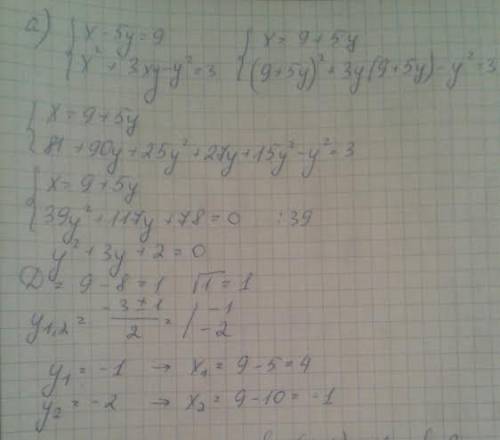 а) { x - 5y = 9 { x = 9 + 5y
{ x² + 3xy - y² = 3 { (9+5y)² + 3y(9+5y) - y² = 3
{ x = 9 + 5y
{ 81 + 90y + 25y² + 27y + 15y² - y² = 3
{ x = 9 + 5y
{ 39y² + 117y + 78 = 0 :39
y² + 3y + 2 = 0
D = 9 - 8 = 1 √1 = 1
y₁,₂ = (-3 ± 1)/2 = / -1
\ -2
y₁ = -1 → x₁ = 9 - 5 = 4
y₂ = -2 → x₂ = 9 - 10 = -1